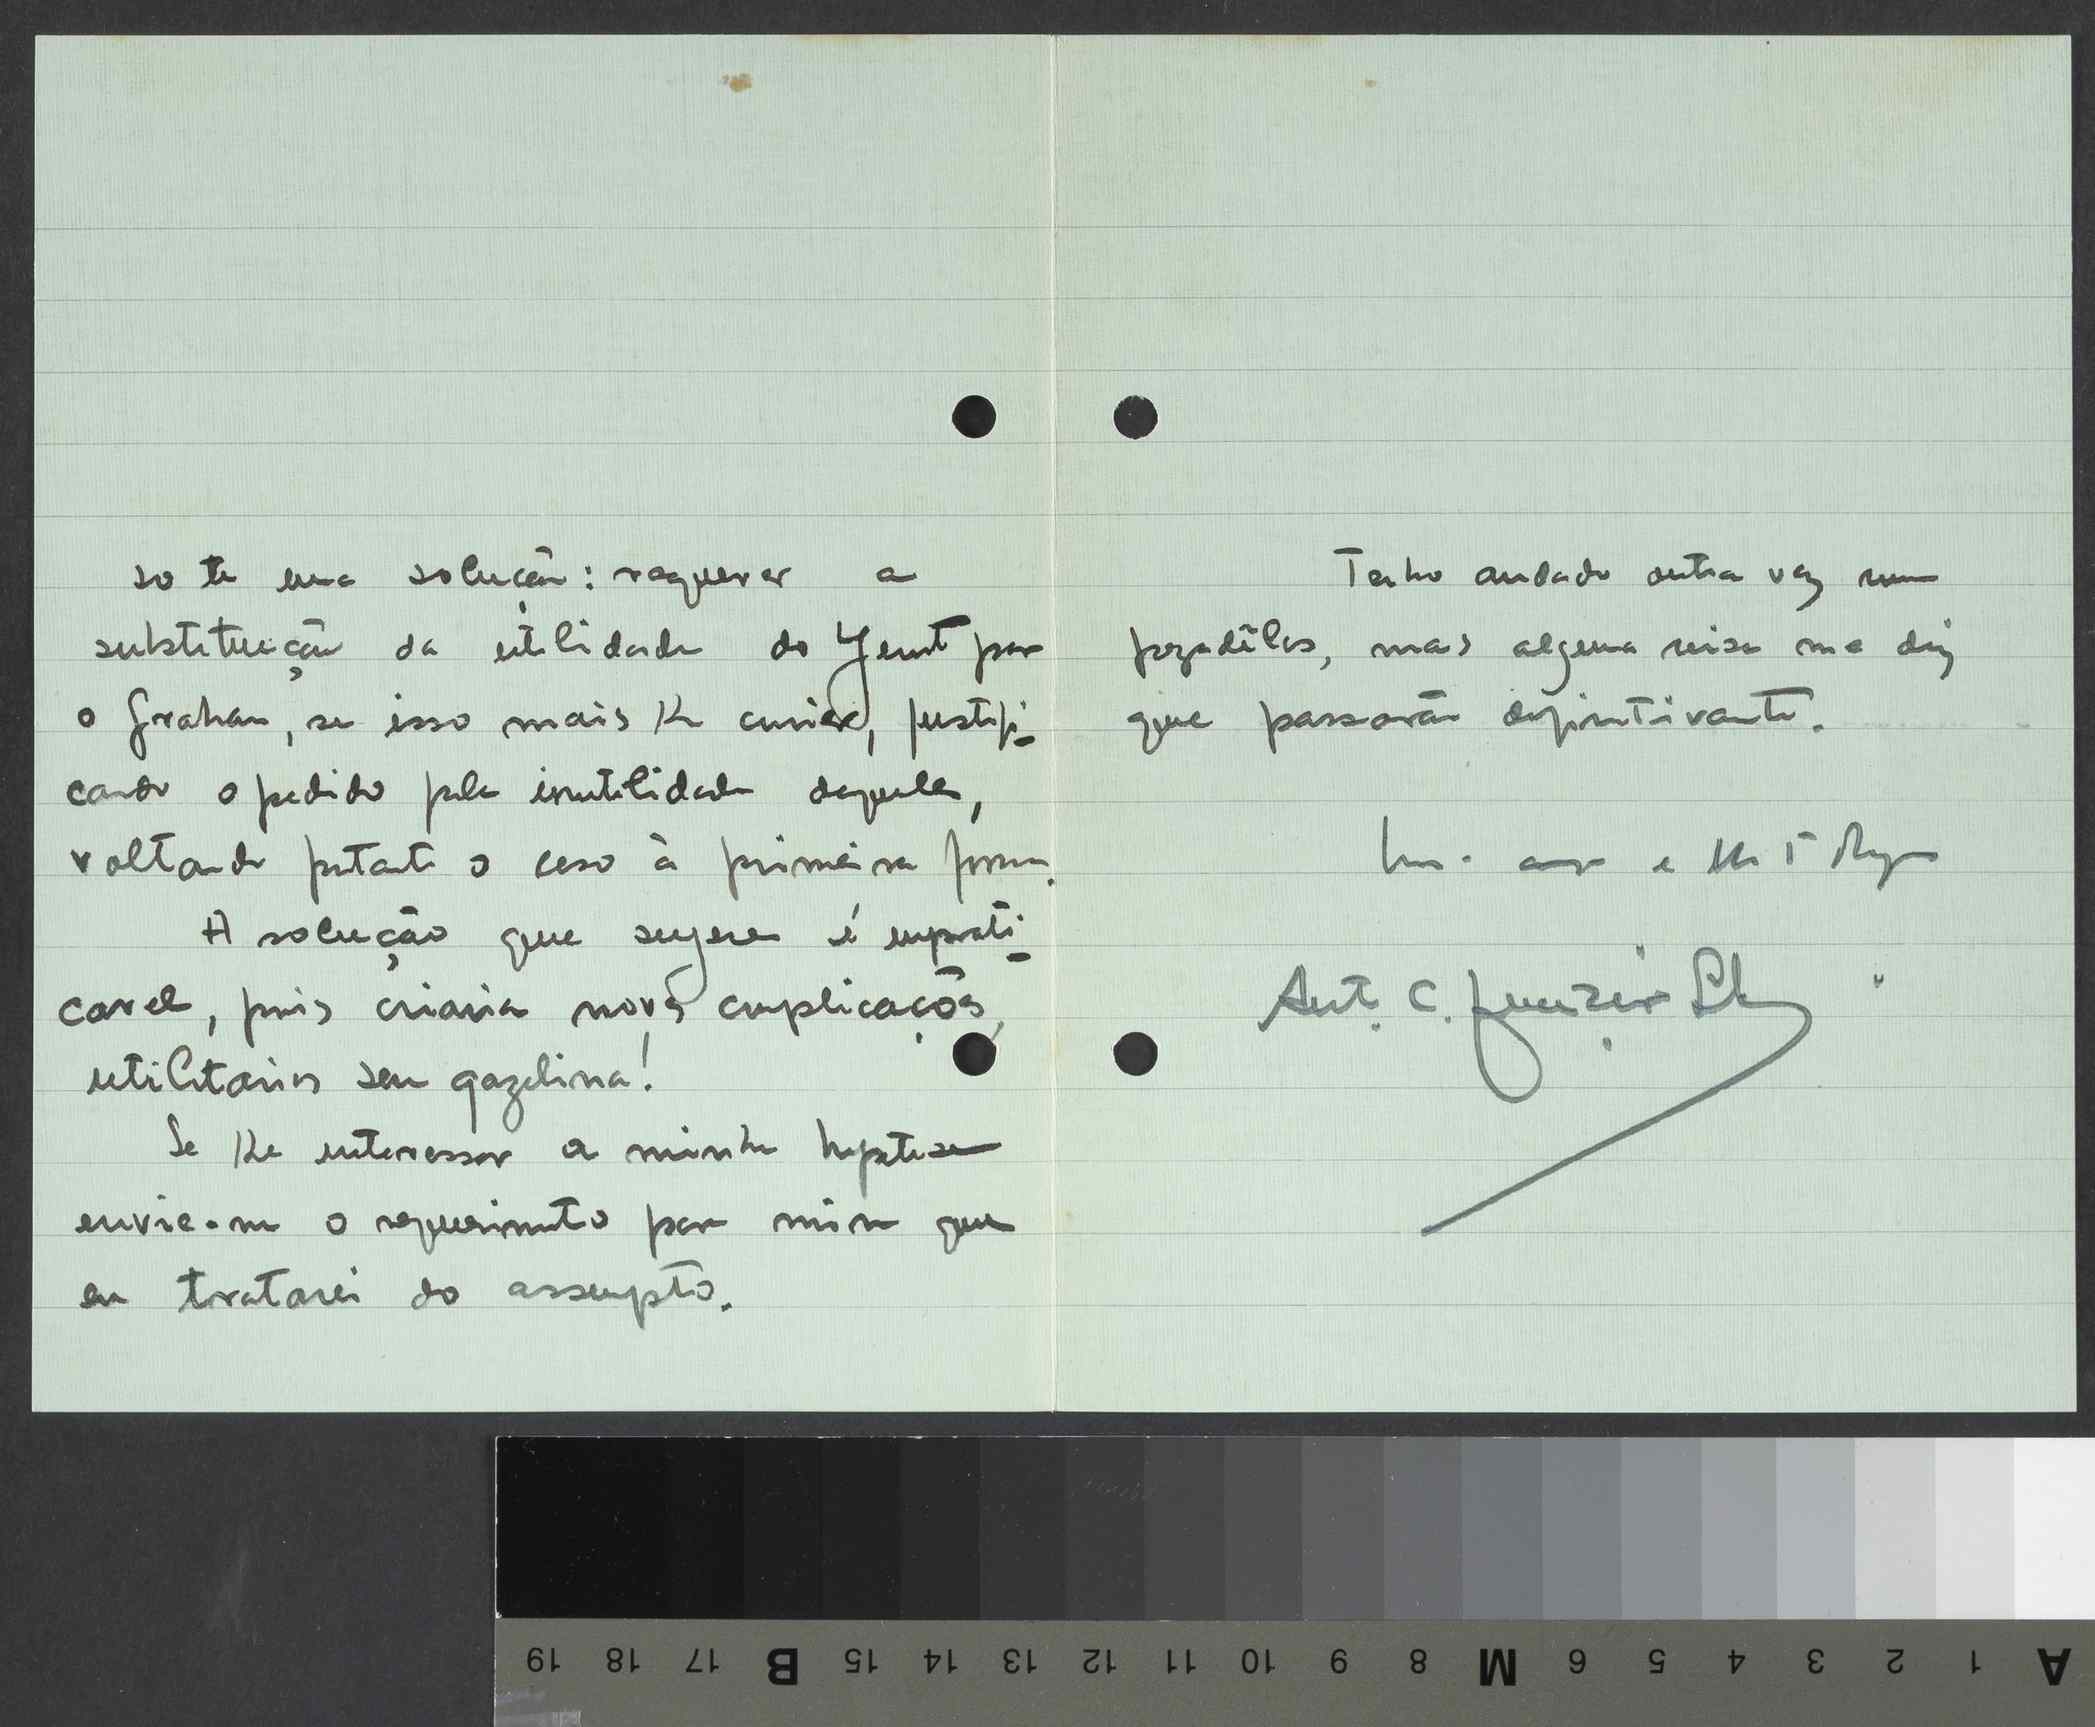 só te uma solução: requerer a
substituição da utilidade do por
o Graham, se isso mais lhe, justifi-
cando o pedido pela inutilidade daquela,
voltando portanto o caso à primeira forma.
A solução que sugere é imprati-
cavel, pois criaria novas complicações,
utilitarios sem gazolina!
Se lhe interessar a minha hipotese
envie-me o requerimento para mim que
eu tratarei do assumpto.
Tenho andado outra vez num
pezadêlos, mas alguma coisa me diz
que passarão definitivamente.
Ant. C.
19 18 17 B 15 14 13 12 11 10 9 8 M 6 5 4 3 2 1 A